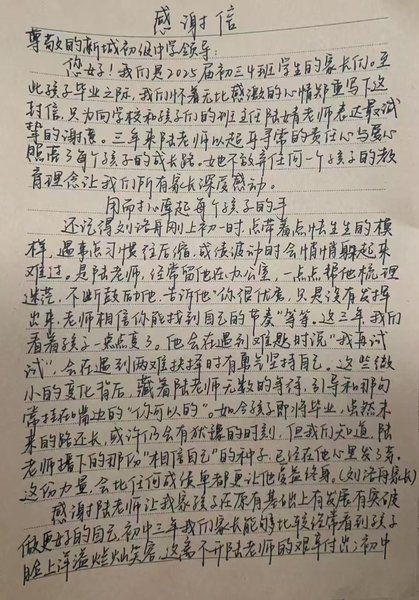 感谢信
尊敬的新城初级中学领导:
您好!我们是2025届初三4班学生的家长们。至
此孩子毕业之际,我们怀着无比感激的心情郑重写下这
封信,只为向学校和孩子们的班主任陆婧老师表达最诚
挚的谢意。三年来陆老师以超乎寻常的责任心与爱心
照亮了每个孩子的成长路。她也不放弃任何一个孩子的教
育理念让我们所有家长深度感动。
因而打心底起每个孩子的手
还记得刘洛冉刚上初一时,总带着点怯生生的模
样,遇事总习惯往后缩,成绩波动时会悄悄躲起来
难过。是陆老师,经常留他在办公室,一点点帮他梳理
迷茫,不断鼓励他,告诉他"你很优秀,只是没有发挥
出来,老师相信你能找到自己的节奏"等等。这三年,我们
看着孩子一点点变了。他会在遇到难题时说"我再试
试",会在遇到两难抉择时有勇气坚持自己。这些微
小的变化背后,藏着陆老师无数的等待,引导和那句
常挂在嘴边的"你可以的"。如今孩子即将毕业,虽然未
来的路还长,或许仍会有忧虑的时刻,但我们知道,陆
老师播下的那份"相信自己"的种子,已经在他心里发了芽。
这份力量,会比任何成绩单都更让他受益终身。(刘洛冉家长)
感谢陆老师让我家孩子在原有基础上有发展有突破
做更好的自己,初中三年我们家长能够比较经常看到孩子
脸上洋溢灿烂笑容,这离不开陆老师的艰辛付出;初中